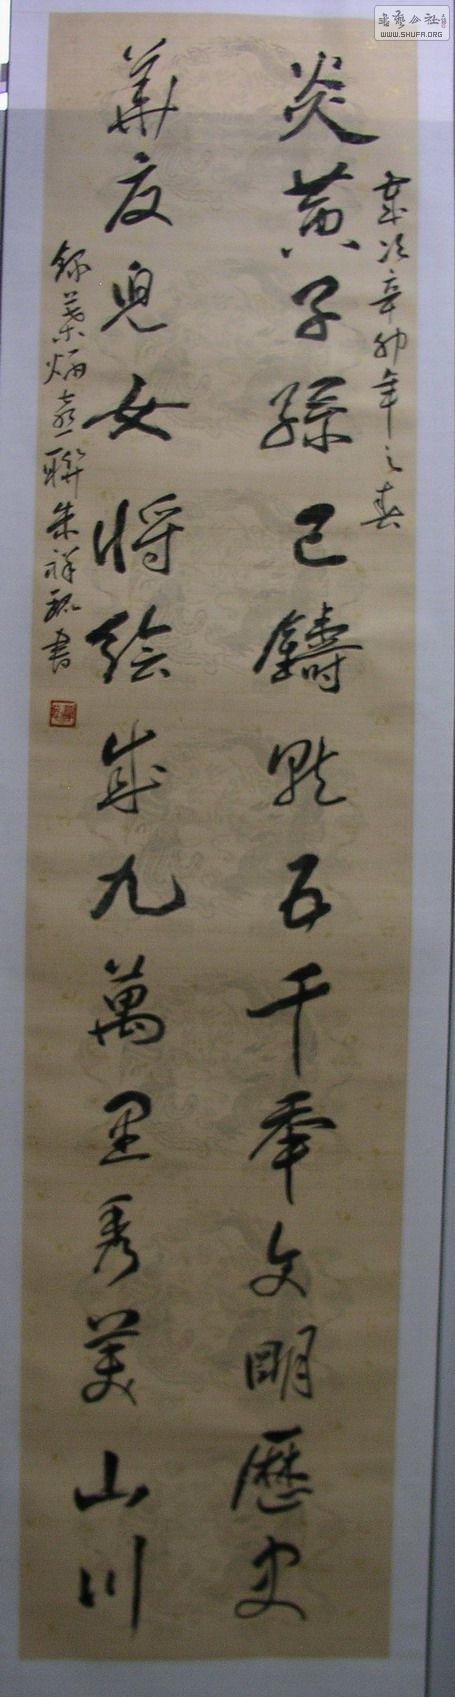 歲次辛卯年之春
炎黃子孫已鑄就五千年文明歷史
華夏兒女將繪成九萬里秀美山川
錄葉炳喜聯朱祥書
書藝公社
WWW.SHUFA.ORG